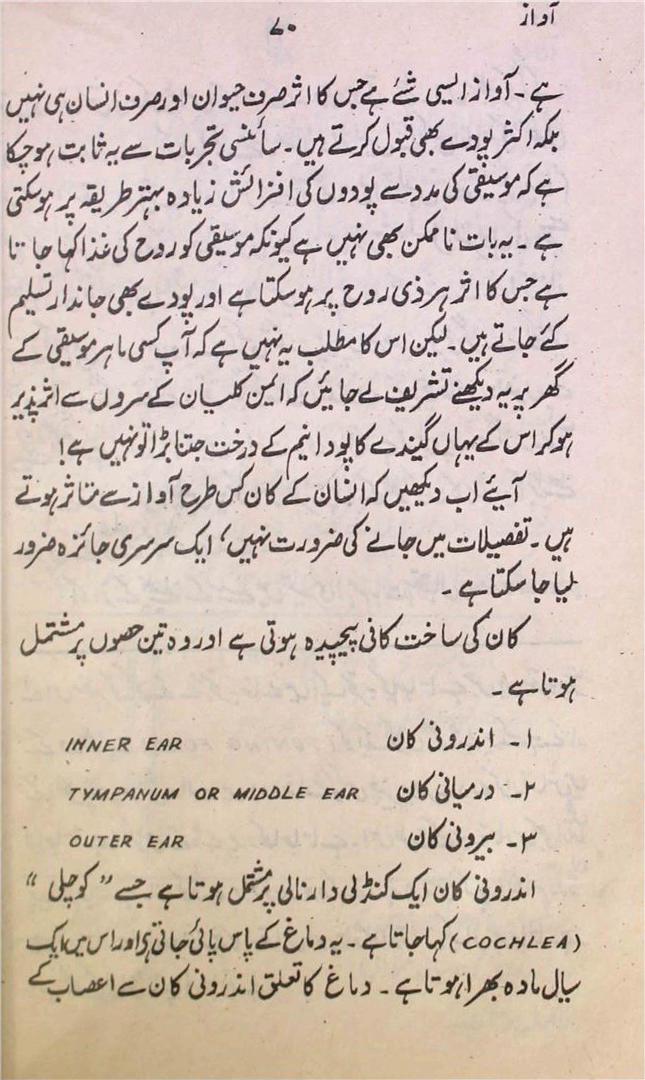 آواز
۷۰
ہے ۔ آواز ایسی شئے ہے جس کا اثر صرف حیوان اور صرف انسان ہی نہیں
بلکہ اکثر پودے بھی قبول کرتے ہیں ۔ سائنسی تجربات سے یہ ثابت ہوچکا
ہے کہ موسیقی کی مدد سے پودوں کی افزائش زیادہ بہتر طریقہ پر ہوسکتی
ہے ۔ یہ بات ناممکن بھی نہیں ہے کیونکہ موسیقی کو روح کی غذا کہا جاتا
ہے جس کا اثر ہر ذی روح پر ہوسکتا ہے اور پودے بھی جاندار تسلیم
کئے جاتے ہیں ۔ لیکن اس کا مطلب یہ نہیں ہے کہ آپ کسی ماہر موسیقی کے
گھر پر یہ دیکھنے تشریف لے جائیں کہ ایمن کلیان کے سروں سے اثر پذیر
ہوکر اس کے یہاں گیندے کا پودا نیم کے درخت جتنا بڑا تو نہیں ہے!
آیئے اب دیکھیں کہ انسان کے کان کس طرح آواز سے متاثر ہوتے
ہیں ۔ تفصیلات میں جانے کی ضرورت نہیں، ایک سرسری جائزہ ضرور
لیا جاسکتا ہے ۔
کان کی ساخت کافی پیچیدہ ہوتی ہے اور وہ تین حصوں پر مشتمل
ہوتا ہے ۔
۱۔ اندرونی کان INNER EAR
۲۔ درمیانی کان TYMPANUM OR MIDDLE EAR
۳۔ بیرونی کان OUTER EAR
اندرونی کان ایک کنڈلی دار نالی پر مشتمل ہوتا ہے جسے "کوچلی"
(COCHLEA) کہا جاتا ہے ۔ یہ دماغ کے پاس پائی جاتی ہے اور اس میں ایک
سیال مادہ بھرا ہوتا ہے ۔ دماغ کا تعلق اندرونی کان سے اعصاب کے